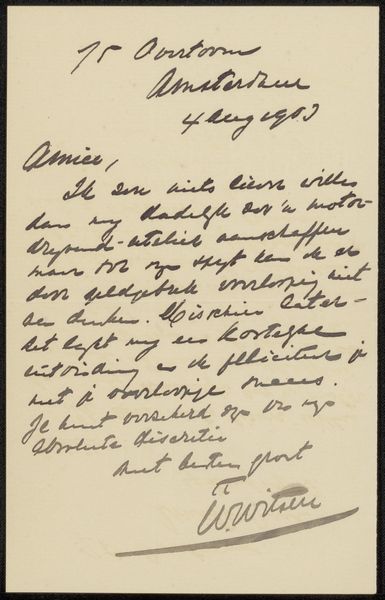 75 Overtoom
Amsterdam
4 Aug 1903
Amice,
Ik zou niets liever willen
dan mij dadelijk zoo'n motor-
drijvend-atelier aanschaffen
maar tot mijn spijt kan ik er
door geldgebrek voorloopig niet
aan denken. Misschien later-
het lijkt mij een kostelijke
uitvinding en ik feliciteer je
met je voorloopige succes.
Je kunt verzekerd zijn van mijn
absolute discretie
met besten groet
tt
W. Witsen